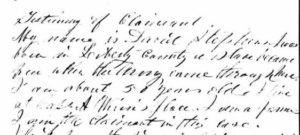 Testimony of Claimant
My name is David Stephens I was
born in Liberty County a slave became
free when the Army came through here.
I am about 5 years old I live
at place I am a farmer
I am the claimant in this case.